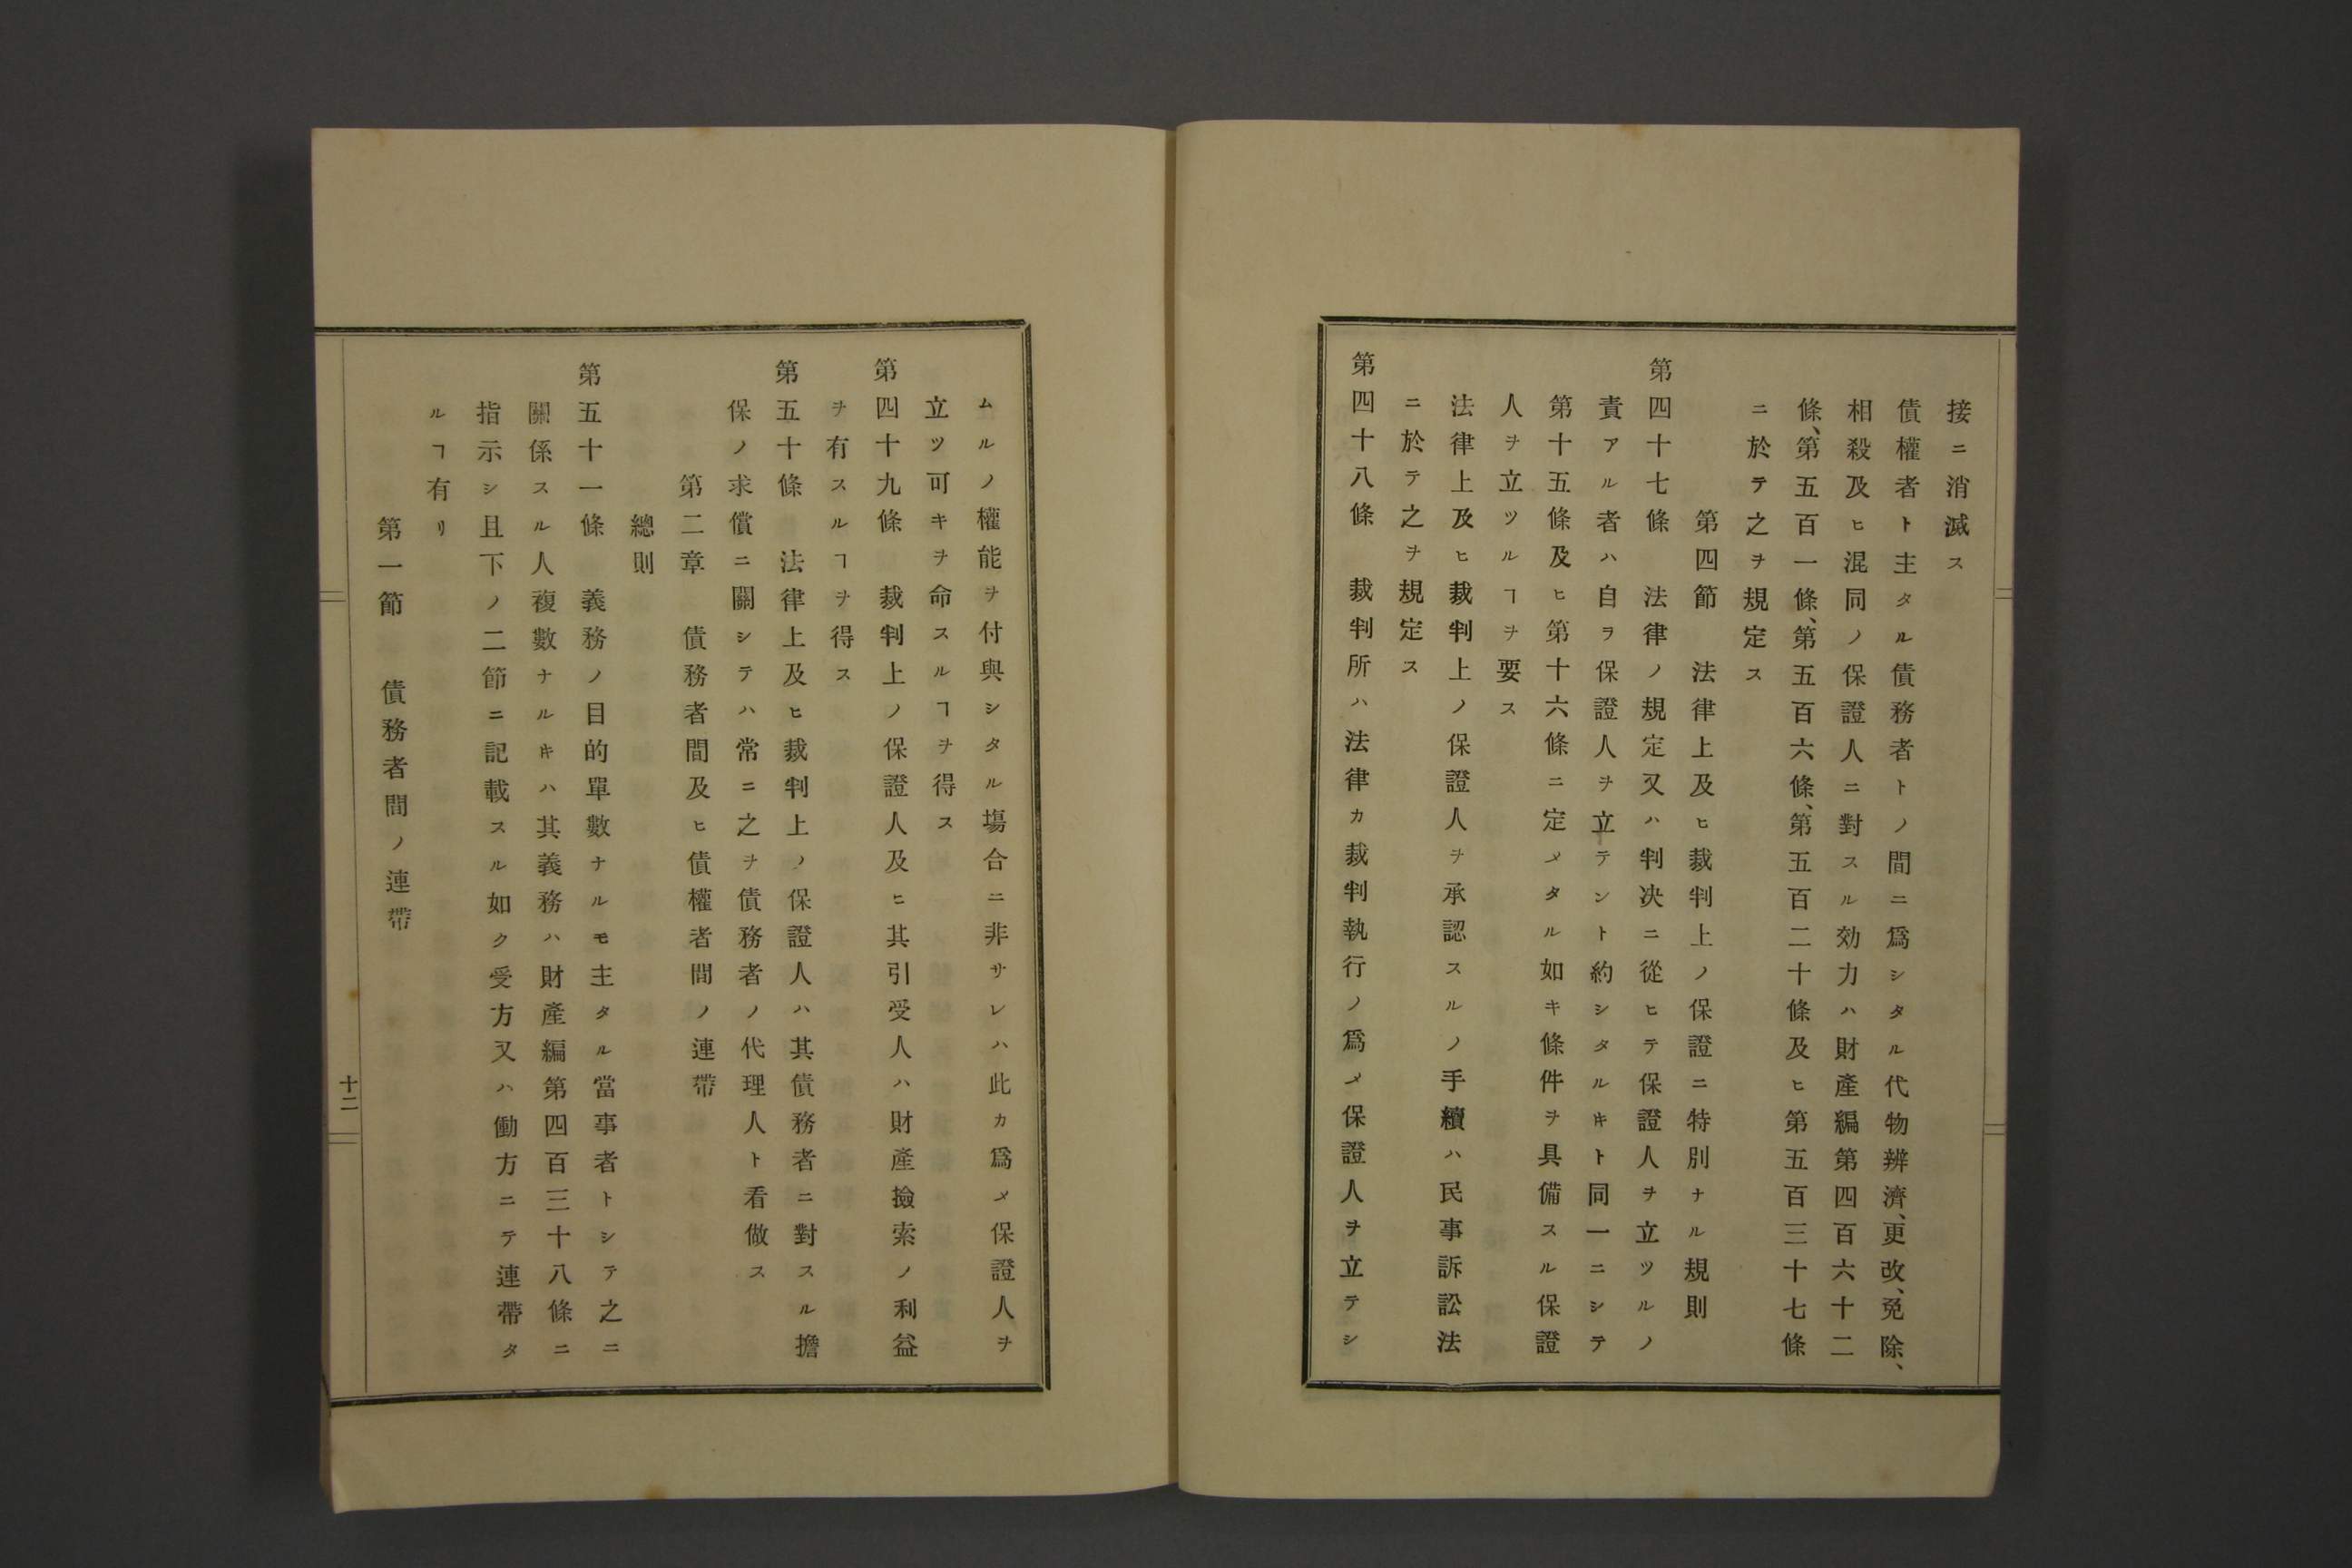 接ニ消滅ス
債權者ト主タル債務者トノ間ニ爲シタル代物辨濟、更改、免除、
相殺及ヒ混同ノ保證人ニ對スル効力ハ財產編第四百六十二
條、第五百一條、第五百六條、第五百二十條及ヒ第五百三十七條
ニ於テ之ヲ規定ス
第四節　法律上及ヒ裁判上ノ保證ニ特別ナル規則
第四十七條　法律ノ規定又ハ判决ニ從ヒテ保證人ヲ立ツルノ
責アル者ハ自ラ保證人ヲ立テント約シタルキト同一ニシテ
第十五條及ヒ第十六條ニ定メタル如キ條件ヲ具備スル保證
人ヲ立ツルヿヲ要ス
法律上及ヒ裁判上ノ保證人ヲ承認スルノ手續ハ民事訴訟法
ニ於テ之ヲ規定ス
第四十八條　裁判所ハ法律カ裁判執行ノ爲メ保證人ヲ立テシ
ムルノ權能ヲ付與シタル塲合ニ非サレハ此カ爲メ保證人ヲ
立ツ可キヲ命スルヿヲ得ス
第四十九條　裁判上ノ保證人及ヒ其引受人ハ財產撿索ノ利益
ヲ有スルヿヲ得ス
第五十條　法律上及ヒ裁判上ノ保證人ハ其債務者ニ對スル擔
保ノ求償ニ關シテハ常ニ之ヲ債務者ノ代理人ト看做ス
第二章　債務者間及ヒ債權者間ノ連帶
總則
第五十一條　義務ノ目的單數ナルモ主タル當事者トシテ之ニ
關係スル人複數ナルキハ其義務ハ財產編第四百三十八條ニ
指示シ且下ノ二節ニ記載スル如ク受方又ハ働方ニテ連帶タ
ルヿ有リ
第一節　債務者間ノ連帶
十二